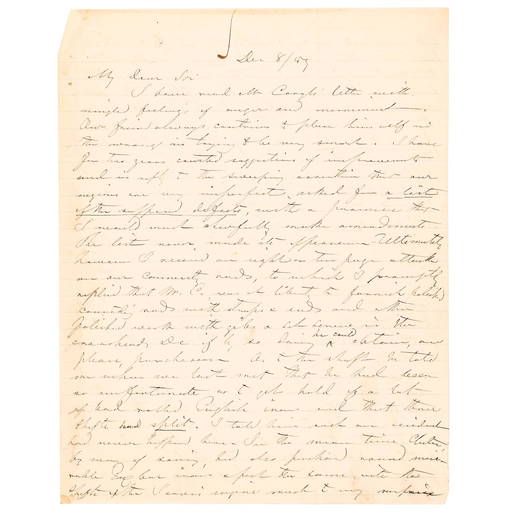 Dec 8/59
My Dear Sir
I have read Mr letter with
mingled feelings of anger and amusement.
Our friend always contrives to please himself in
the wrong in trying to be very smart. I have
for two years courted suggestions of improvements
and in reply to the sweeping assertion that our
engines are very imperfect, asked for a list
of the supposed defects, with a promise that
I would most cheerfully make amendments.
The list never made its appearance. Ultimately
however I received an eight or two page attack
on our connecting rods, to which I promptly
replied that Mr. C. was at liberty to furnish polished
connecting rods with straps ends and other
polished work with gibs & in the
crossheads, &c if by so doing he could obtain, one
please, purchasers. As to the shafts he told
me when we last met that he had been
so unfortunate as to get hold of a lot
of bad rolled English iron and that three
shafts had split. I told him such an accident
had never happened here. In the mean time,
by way of saving, had also purchased round
English iron & put the same into the
shafts of the engine much to my surprise